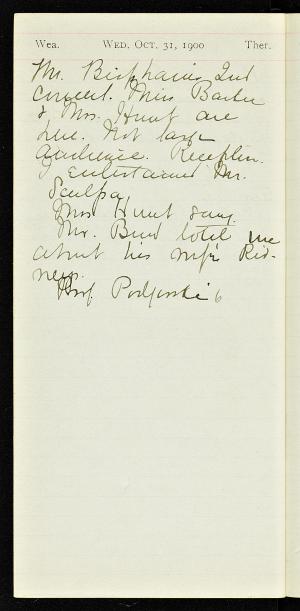 Wea. WED, OCT. 31, 1900 Ther.
Mr. Bispham's 2nd
concert. Miss Barber
& Mrs. Hunt are
here. Not large
audience. Reception.
I entertained Mr.
Sculpa
Mrs Hunt sang.
Mr. told me
about his wife Kid-
neys.
Prof.